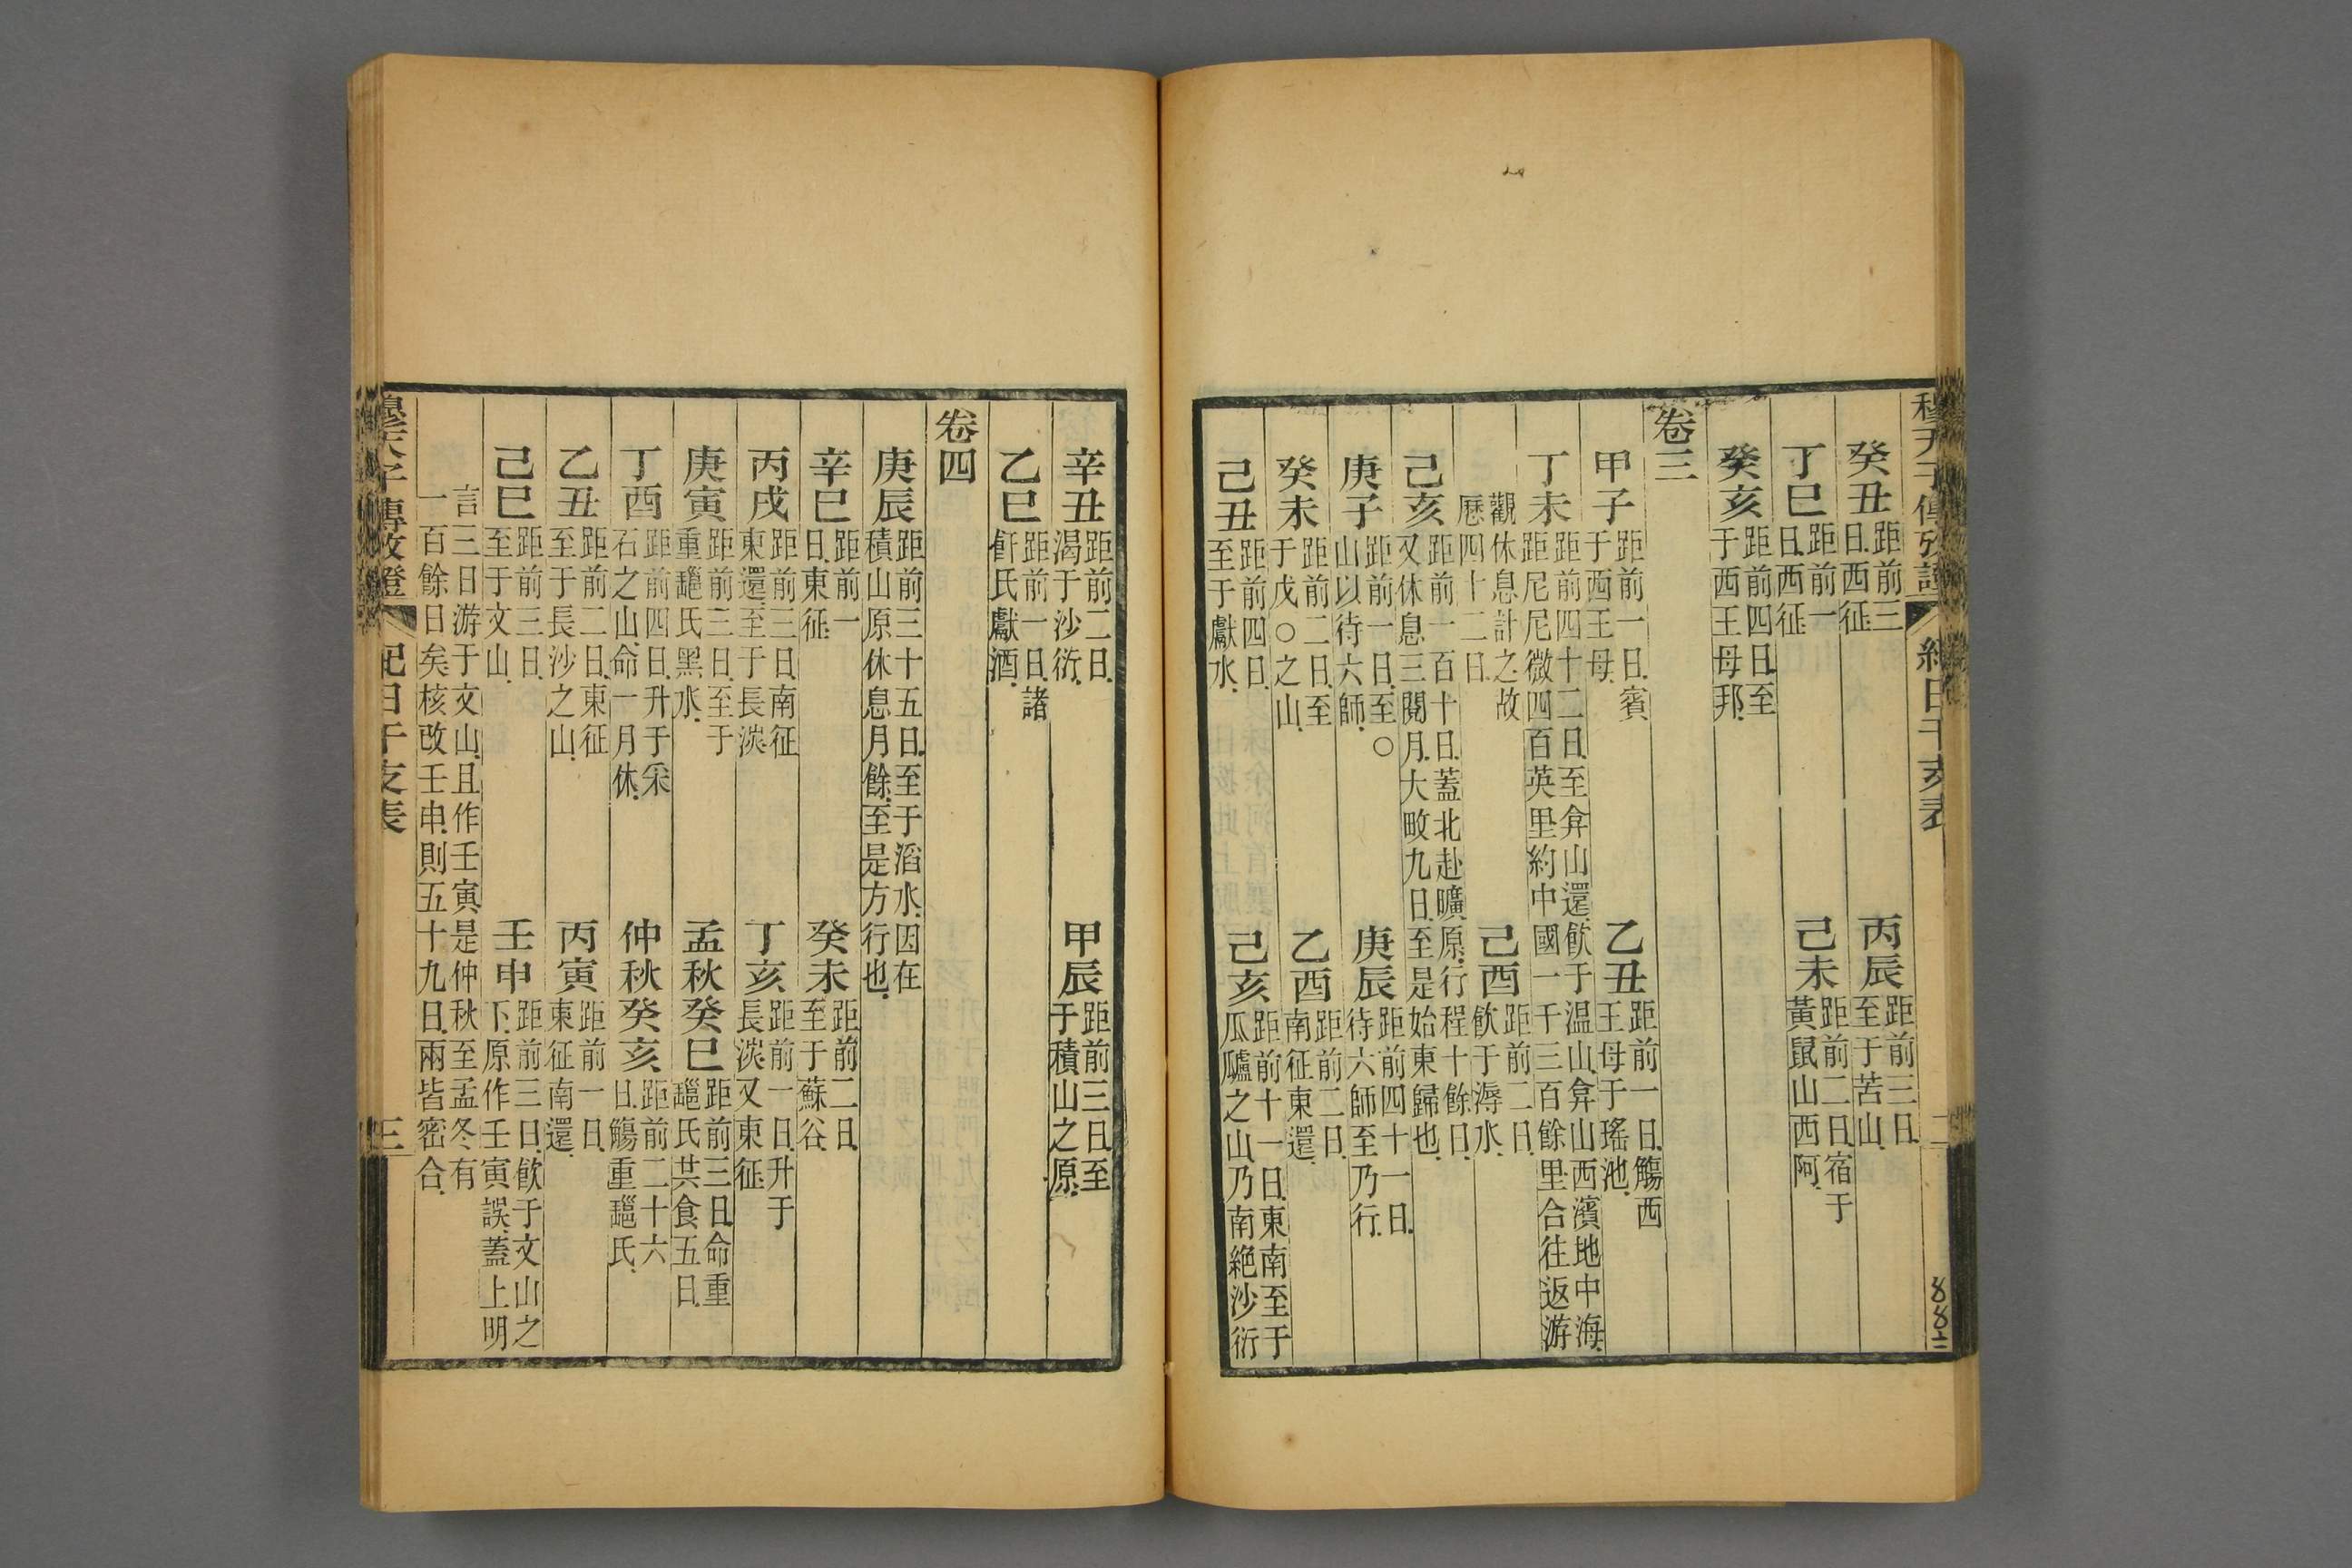 穆天子傳攷證 紀日干支表 二
癸丑 距前三日西征 丙辰 距前三日至于苦山
丁巳 距前一日西征 己未 距前二日宿于黃鼠山西阿
癸亥 距前四日至于西王母邦
卷三
甲子 距前一日賓于西王母 乙丑 距前一日觴西王母于瑤池
丁未 距前四十二日至弇山還飲于温山弇山西濱地中海距尼尼微四百英里約中國一千三百餘里合往返游
觀休息計之故歷四十二日 己酉 距前二日飲于溽水
己亥 距前一百十日蓋北赴曠原行程十餘日又休息三閱月大畋九日至是始東歸也
庚子 距前一日至○山以待六師 庚辰 距前四十一日待六師至乃行
癸未 距前二日至于戊○之山 乙酉 距前二日南征東還
己丑 距前四日至于獻水 己亥 距前十一日東南至于瓜鑪之山乃南絶沙衍
辛丑 距前二日渴于沙衍 甲辰 距前三日至于積山之原
乙巳 距前一日諸飦氏獻酒
卷四
庚辰 距前三十五日至于滔水因在積山原休息月餘至是方行也
辛巳 距前一日東征 癸未 距前二日至于蘇谷
丙戌 距前三日南征東還至于長淡 丁亥 距前一日升于長淡又東征
庚寅 距前三日至于重䍃氏黑水 孟秋癸巳 距前三日命重䍃氏共食五日
丁酉 距前四日升于采石之山命一月休 仲秋癸亥 距前二十六日觴重䍃氏
乙丑 距前二日東征至于長沙之山 丙寅 距前一日東征南還
己巳 距前三日至于文山 壬申 距前三日飲于文山之下原作壬寅誤蓋上明
言三日游于文山且作壬寅是仲秋至孟冬有一百餘日矣核改壬申則五十九日兩皆密合
穆天子傳攷證 紀日干支表 三